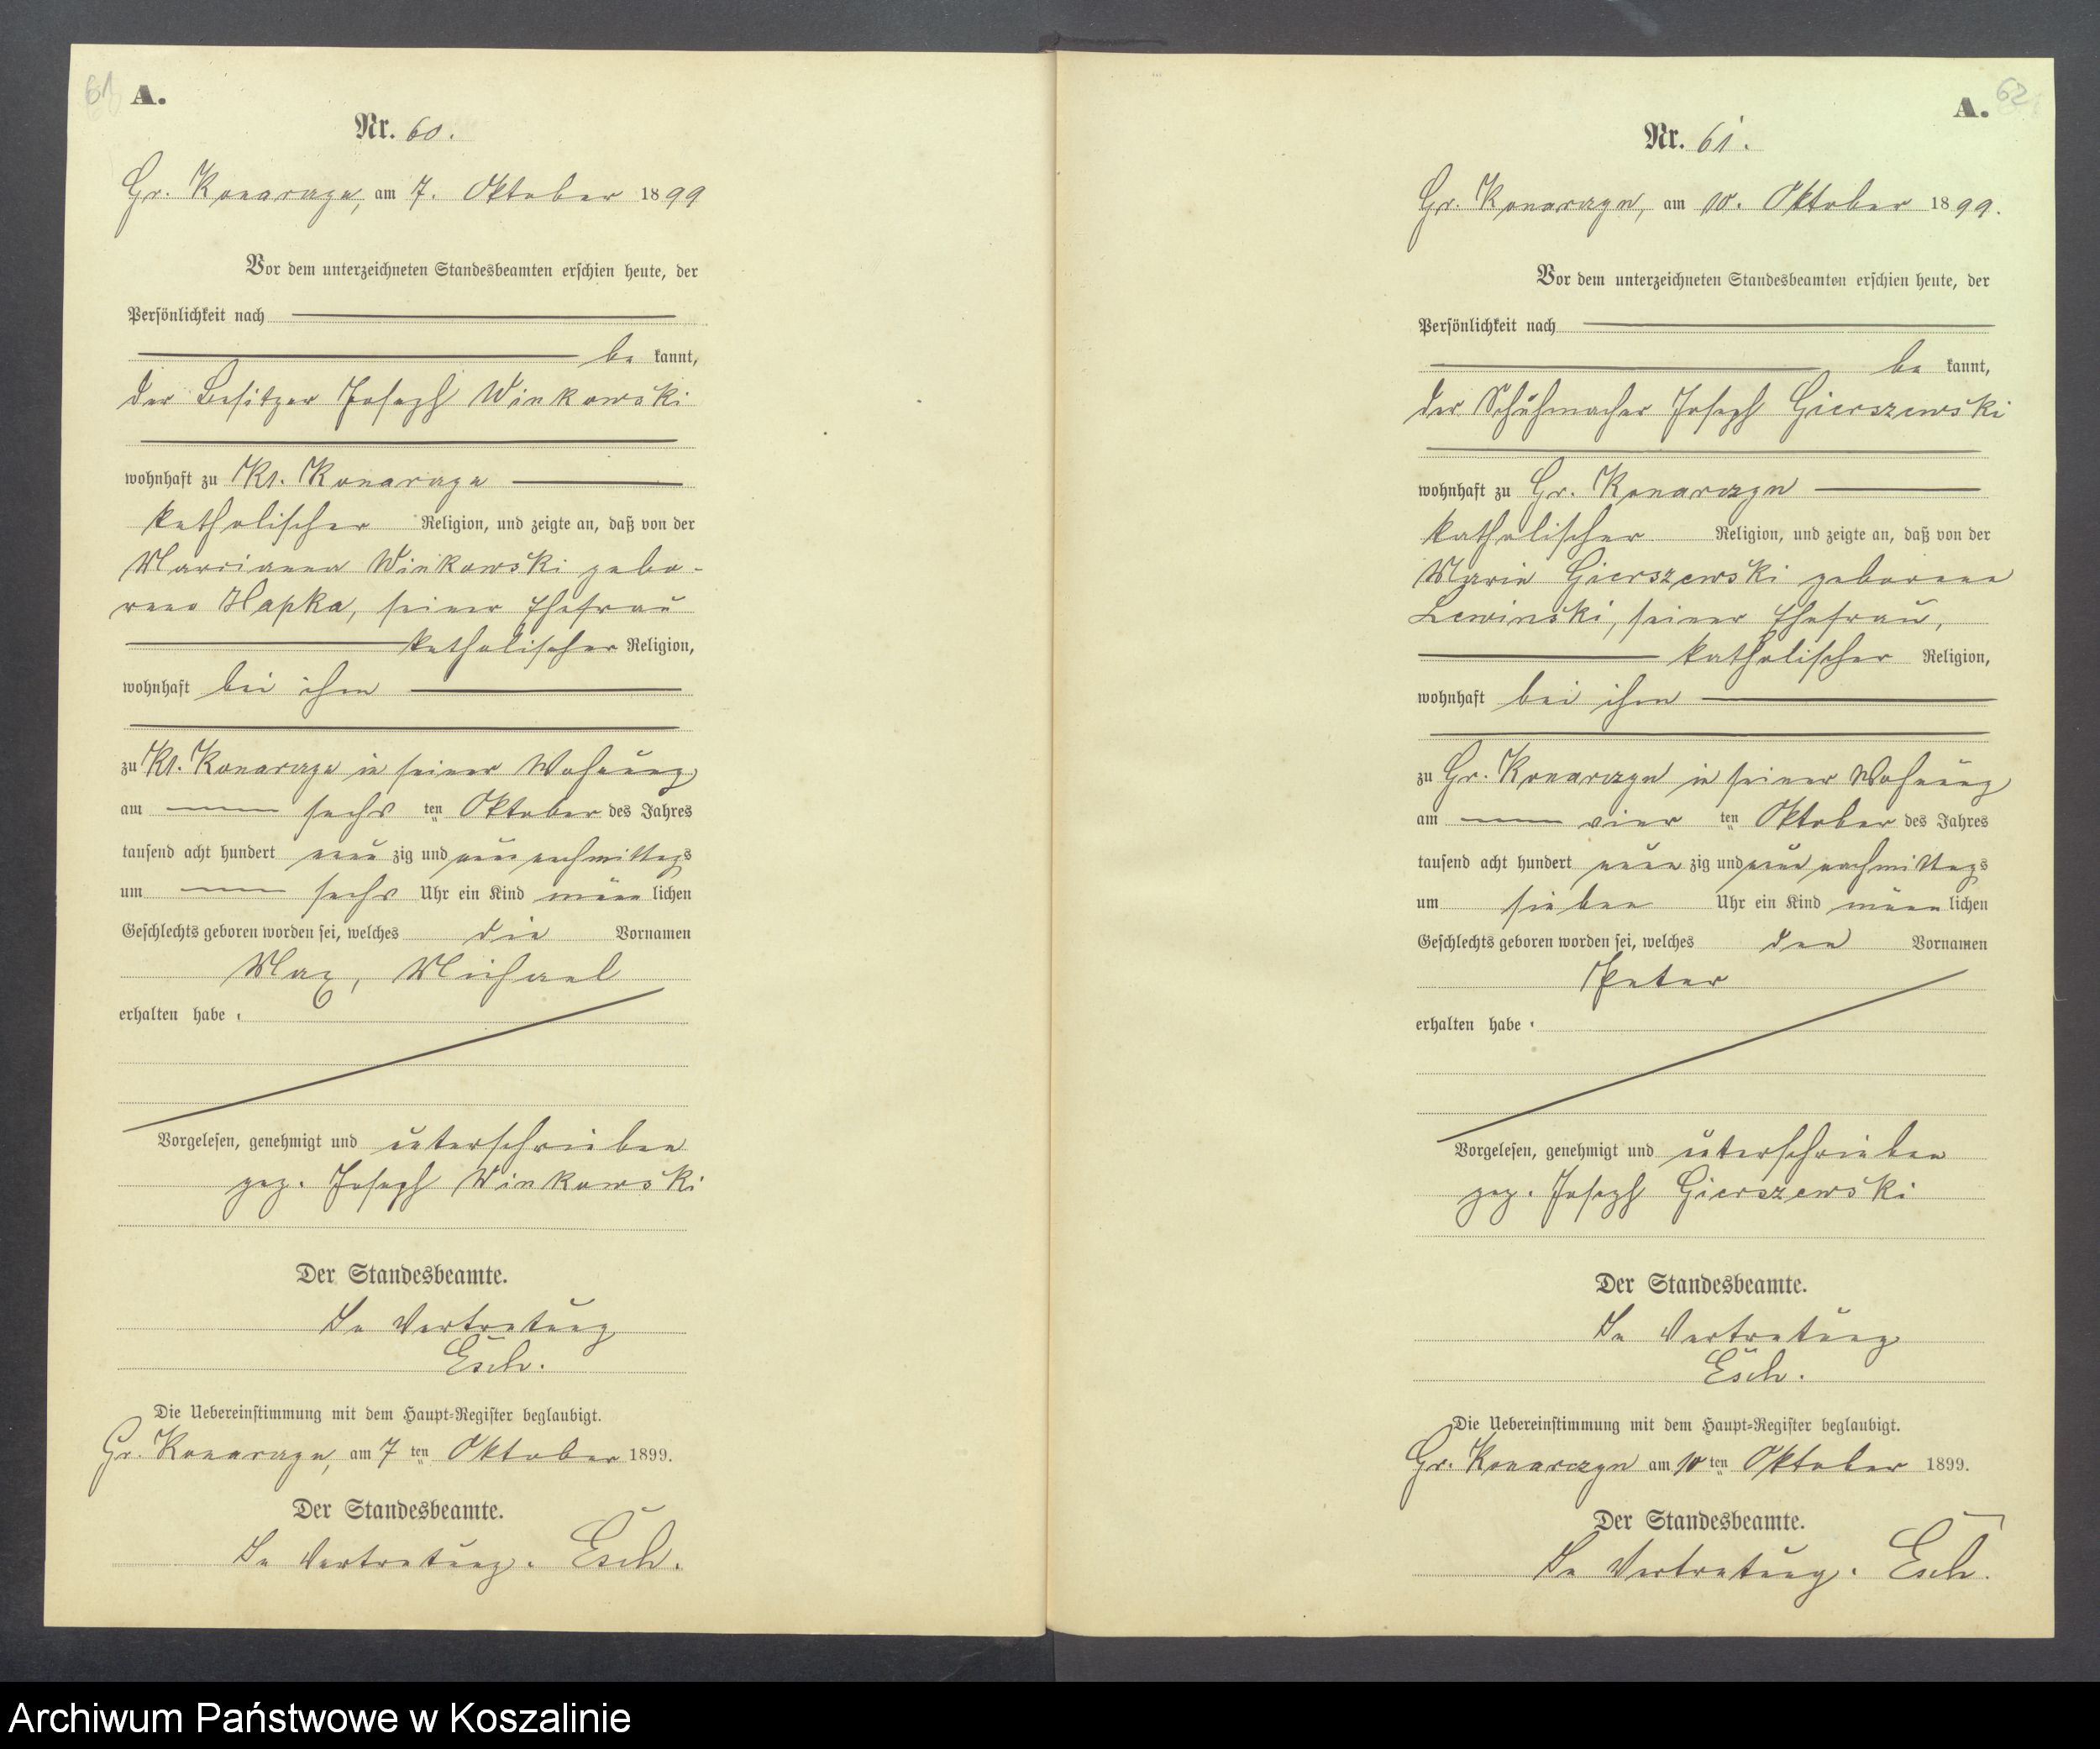 61
A.
Nr. 60.
Gr. Konarczyn, am 7. Oktober 1899
Vor dem unterzeichneten Standesbeamten erschien heute, der
Persönlichkeit nach
be kannt,
der Besitzer Joseph Winkowski
wohnhaft zu Kl. Konarczyn
katholischer Religion, und zeigte an, daß von der
Marianna Winkowski gebo-
rene Hapka, seiner Ehefrau
katholischer Religion,
wohnhaft bei ihm
zu Kl. Konarczyn in seiner Wohnung
am sechs ten Oktober des Jahres
tausend acht hundert neun zig und neun nachmittags
um sechs Uhr ein Kind männ lichen
Geschlechts geboren worden sei, welches die Vornamen
Max, Michael
erhalten habe.
Vorgelesen, genehmigt und unterschrieben
gez. Joseph Winkowski
Der Standesbeamte.
In Vertretung
Esch.
Die Uebereinstimmung mit dem Haupt-Register beglaubigt.
Gr. Konarczyn, am 7 ten Oktober 1899.
Der Standesbeamte.
In Vertretung. Esch.
62
A.
Nr. 61.
Gr. Konarczyn, am 10. Oktober 1899.
Vor dem unterzeichneten Standesbeamten erschien heute, der
Persönlichkeit nach
be kannt,
der Schuhmacher Joseph Gierszewski
wohnhaft zu Gr. Konarczyn
katholischer Religion, und zeigte an, daß von der
Marie Gierszewski geborene
Lewinski, seiner Ehefrau,
katholischer Religion,
wohnhaft bei ihm
zu Gr. Konarczyn in seiner Wohnung
am vier ten Oktober des Jahres
tausend acht hundert neun zig und neun nachmittags
um sieben Uhr ein Kind männ lichen
Geschlechts geboren worden sei, welches den Vornamen
Peter
erhalten habe.
Vorgelesen, genehmigt und unterschrieben
gez. Joseph Gierszewski
Der Standesbeamte.
In Vertretung
Esch.
Die Uebereinstimmung mit dem Haupt-Register beglaubigt.
Gr. Konarczyn am 10 ten Oktober 1899.
Der Standesbeamte.
In Vertretung. Esch.
Archiwum Państwowe w Koszalinie